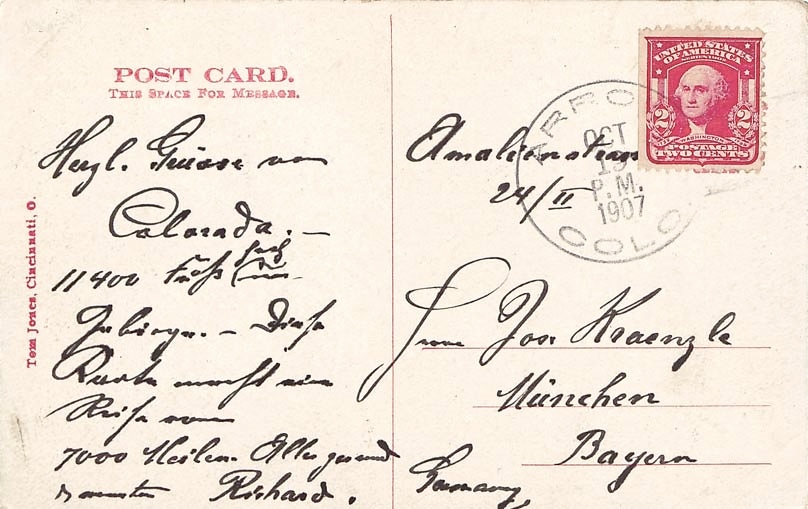 POST CARD.
THIS SPACE FOR MESSAGE.
Herzl. Grüsse von
Colorado. –
11400 Fuß hoch
im
Gebirge. – Diese
Karte macht eine
Reise von
7000 Meilen. Alles gesund
Richard.
Tom Jones, Cincinnati, O.
UNITED STATES
OF AMERICA
SERIES 1902
2 WASHINGTON 2
POSTAGE
TWO CENTS
ARRO
OCT
19
P.M.
1907
COLO.
Amalienstrasse
24/II
Frau Jos. Kraenzle
München
Bayern
Germany